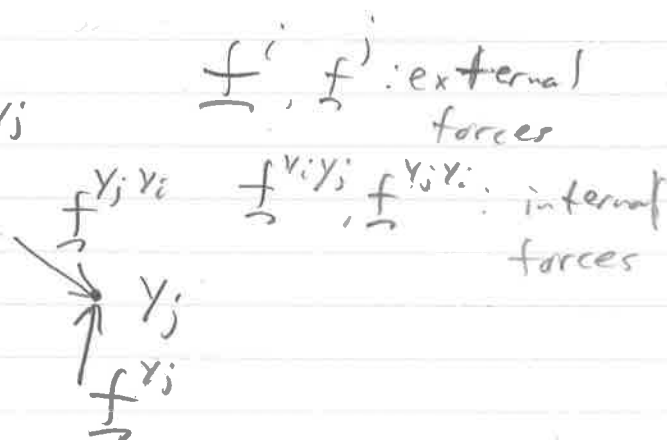 f^i, f^j : external
forces
y_j
f^{y_j y_i} f^{y_i y_j}, f^{y_j y_i} : internal
forces
y_j
f^{y_j}